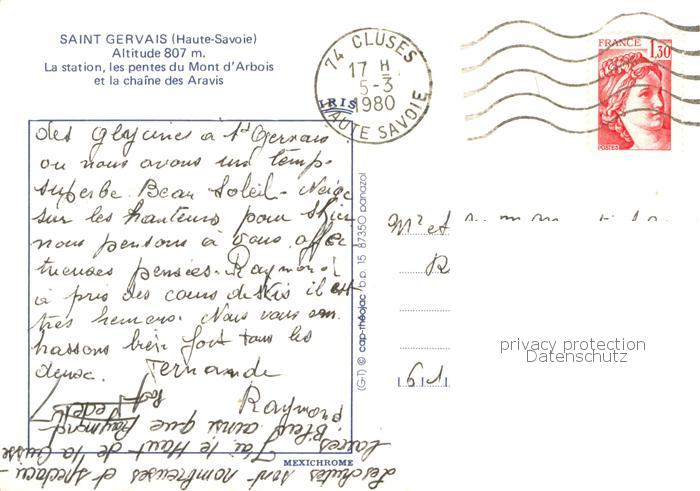 SAINT GERVAIS (Haute-Savoie)
Altitude 807 m.
La station, les pentes du Mont d'Arbois
et la chaîne des Aravis
74 CLUSES
17 H
5-3
1980
HAUTE SAVOIE
FRANCE
1,30
POSTES
IRIS
des glycines a St Gervais
ou nous avons un temps
superbe. Beau Soleil - Neige
sur les hauteurs pour skier
nous pensons à vous affec
tueuses pensées. Raymond
à pris des cours de skis il est
très heureux. Nous vous em
brassons bien fort tous les
deux. Fernande
Raymond
Les chutes sont nombreuses et spectacu-
laires J'ai le Haut de la cuisse
Bleu ainsi que Raymond
(G-1) © cap-théojac b.p. 15 87350 panazol
MEXICHROME
Mr et
R
61
privacy protection
Datenschutz